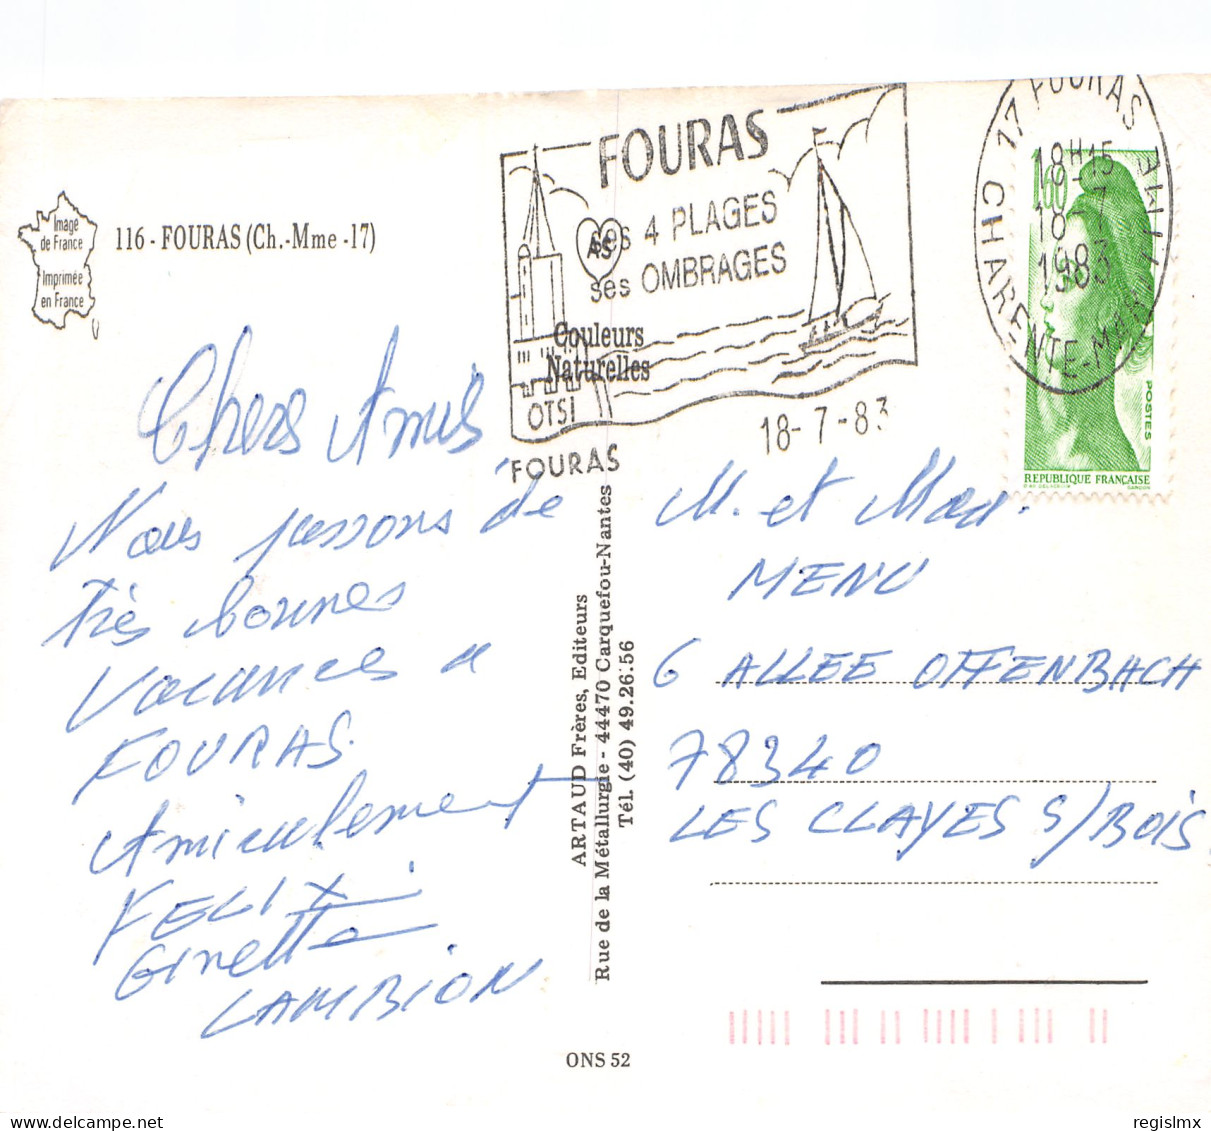 Image
de France
Imprimée
en France
116 - FOURAS (Ch.-Mme -17)
FOURAS
ses 4 PLAGES
ses OMBRAGES
AS
Couleurs
Naturelles
OTSI
FOURAS
18-7-83
17 FOURAS
CHARENTE-MAR
18H15
18-7
1983
1,60
POSTES
REPUBLIQUE FRANÇAISE
Chers Amis
Nous passons de
très bonnes
Vacances a
FOURAS.
Amicalement
FELIX
Ginette
LAMBION
ARTAUD Frères, Editeurs
Rue de la Métallurgie - 44470 Carquefou-Nantes
Tél. (40) 49.26.56
M. et Mad.
MENU
6 ALLEE OFFENBACH
78340
LES CLAYES S/BOIS
ONS 52
regislmx